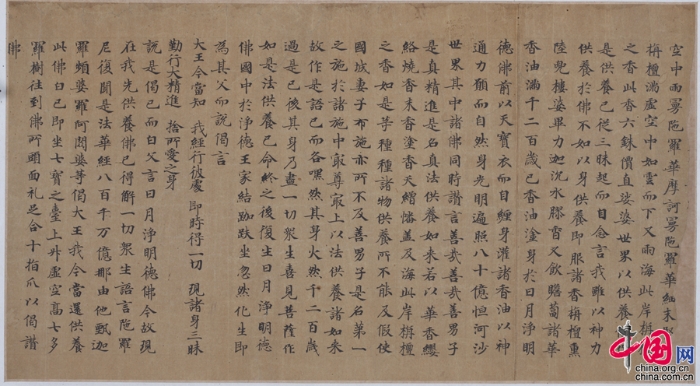 空中雨曼陀羅華摩訶曼陀羅華細末
栴檀滿虛空中如雲而下又雨海此岸栴檀
之香此香六銖價直娑婆世界以供養
是供養已從三昧起而自念言我雖以神力
供養於佛不如以身供養即服諸香栴檀薰
陸兜樓婆畢力迦沈水膠香又飲瞻蔔諸華
香油滿千二百歲已香油塗身於日月淨明
德佛前以天寶衣而自纏身灌諸香油以神
通力願而自然身光明遍照八十億恒河沙
世界其中諸佛同時讚言善哉善哉善男子
是真精進是名真法供養如來若以華香瓔
珞燒香末香塗香天繒幡蓋及海此岸栴檀
之香如是等種種諸物供養所不能及假使
國城妻子布施亦所不及善男子是名第一
之施於諸施中最尊最上以法供養諸如來
故作是語已而各默然其身火然千二百歲
過是已後其身乃盡一切眾生喜見菩薩作
如是法供養已命終之後復生日月淨明德
佛國中於淨德王家結跏趺坐忽然化生即
為其父而說偈言
大王今當知 我經行彼處 即時得一切 現諸身三昧
勤行大精進 捨所愛之身
說是偈已而白父言日月淨明德佛今故現
在我先供養佛已得解一切眾生語言陀羅
尼復聞是法華經八百千万億那由他甄迦
羅頻婆羅阿閦婆等偈大王我今當還供養
此佛白已即坐七寶之臺上昇虛空高七多
羅樹往到佛所頭面礼足合十指爪以偈讚
佛
中国网
china.org.cn
china.com.cn